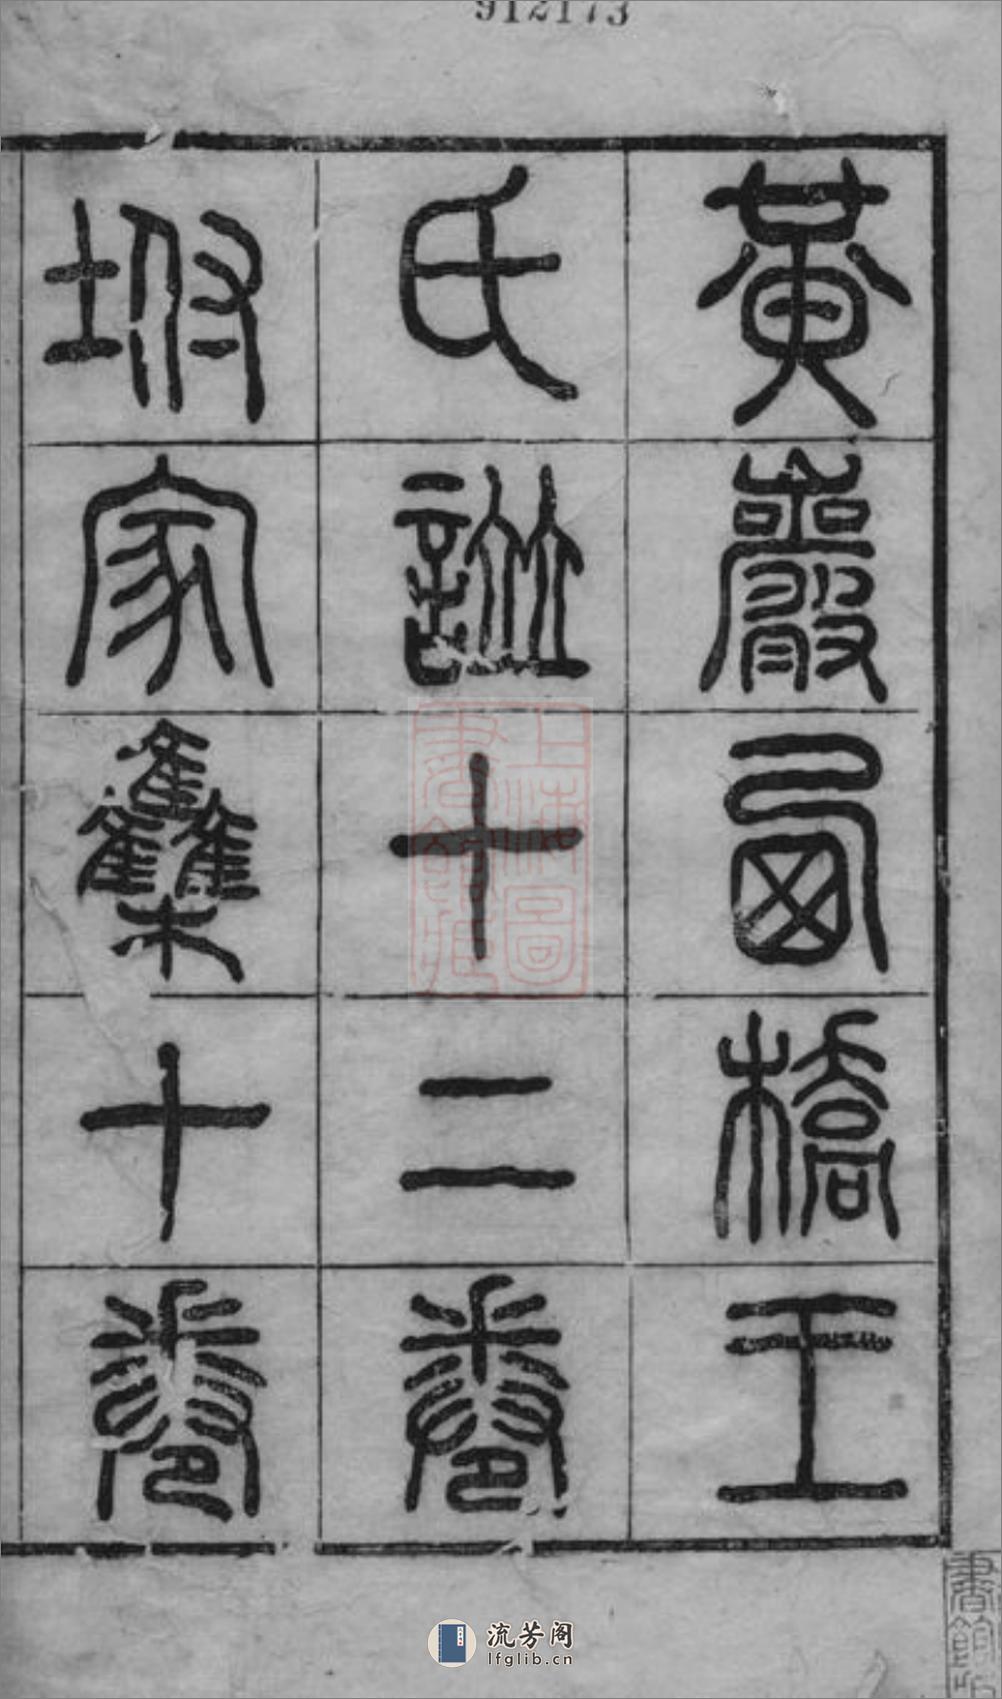 912173
黃巖西橋王
氏譜十二卷
坿家集十卷
上海圖
書館藏
流芳阁
lfglib.cn